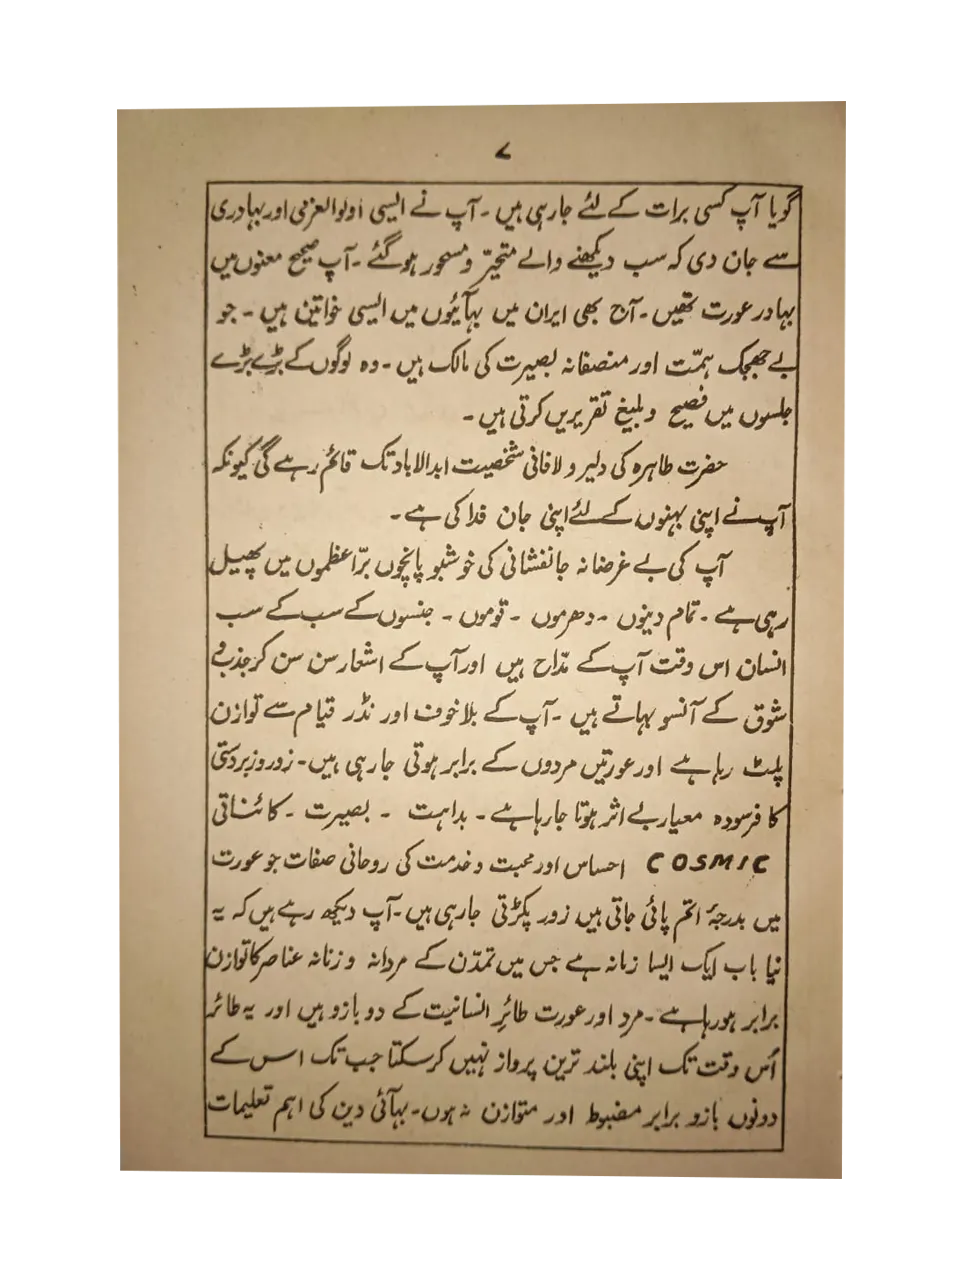 ۷
گویا آپ کسی برات کے لئے جارہی ہیں۔ آپ نے ایسی اولوالعزمی اور بہادری
سے جان دی کہ سب دیکھنے والے متحیّر و مسحور ہوگئے۔ آپ صحیح معنوں میں
بہادر عورت تھیں۔ آج بھی ایران میں بہآئیوں میں ایسی خواتین ہیں۔ جو
بے جھجک ہمّت اور منصفانہ بصیرت کی مالک ہیں۔ وہ لوگوں کے بڑے بڑے
جلسوں میں فصیح و بلیغ تقریریں کرتی ہیں۔
حضرت طاہرہ کی دلیر و لافانی شخصیت ابدالاباد تک قائم رہے گی کیونکہ
آپ نے اپنی بہنوں کے لئے اپنی جان فدا کی ہے۔
آپ کی بے غرضانہ جانفشانی کی خوشبو پانچوں برّاعظموں میں پھیل
رہی ہے۔ تمام دینوں ۔ دھرموں ۔ قوموں ۔ جنسوں کے سب کے سب
انسان اس وقت آپ کے مدّاح ہیں اور آپ کے اشعار سن سن کر جذب و
شوق کے آنسو بہاتے ہیں۔ آپ کے بلا خوف اور نڈر قیام سے توازن
پلٹ رہا ہے اور عورتیں مردوں کے برابر ہوتی جارہی ہیں۔ زور و زبردستی
کا فرسودہ معیار بے اثر ہوتا جارہا ہے۔ بداہت ۔ بصیرت ۔ کائناتی
COSMIC احساس اور محبت و خدمت کی روحانی صفات جو عورت
میں بدرجۂ اتم پائی جاتی ہیں زور پکڑتی جارہی ہیں۔ آپ دیکھ رہے ہیں کہ یہ
نیا باب ایک ایسا زمانہ ہے جس میں تمدّن کے مردانہ و زنانہ عناصر کا توازن
برابر ہورہا ہے۔ مرد اور عورت طائرِ انسانیت کے دو بازو ہیں اور یہ طائر
اُس وقت تک اپنی بلند ترین پرواز نہیں کرسکتا جب تک اس کے
دونوں بازو برابر مضبوط اور متوازن نہ ہوں۔ بہآئی دین کی اہم تعلیمات